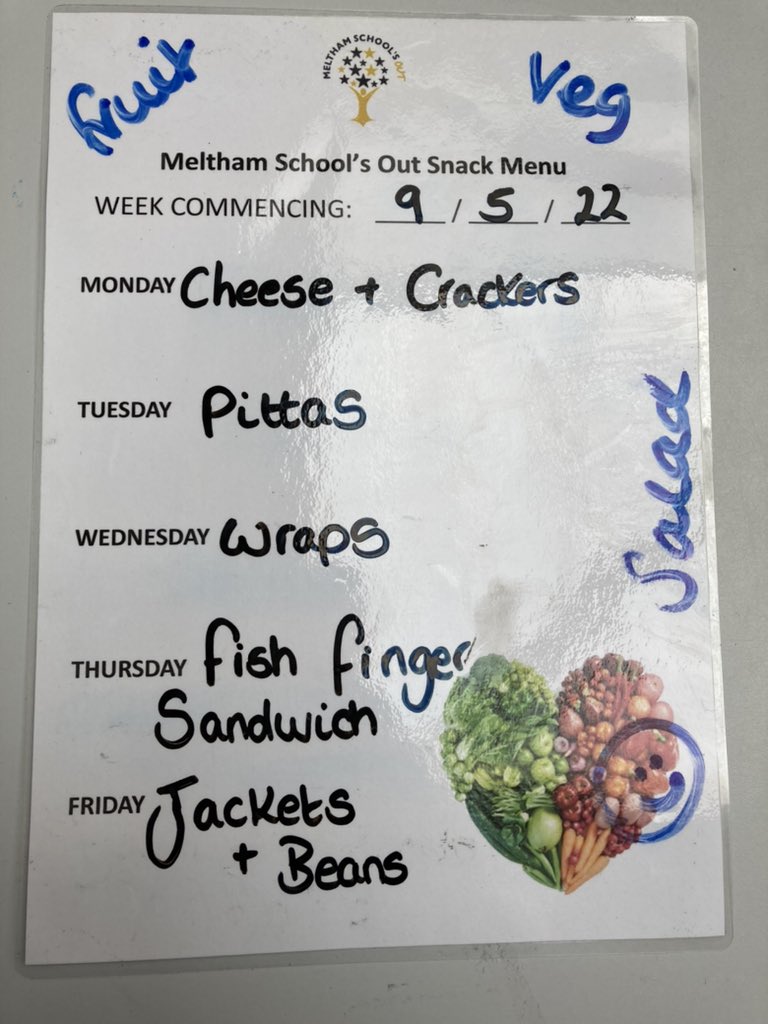 Fruit
Veg
MELTHAM SCHOOL'S OUT
Meltham School's Out Snack Menu
WEEK COMMENCING: 9 / 5 / 22
MONDAY Cheese + Crackers
TUESDAY Pittas
Salad
WEDNESDAY Wraps
THURSDAY fish finger
Sandwich
FRIDAY Jackets
+ Beans